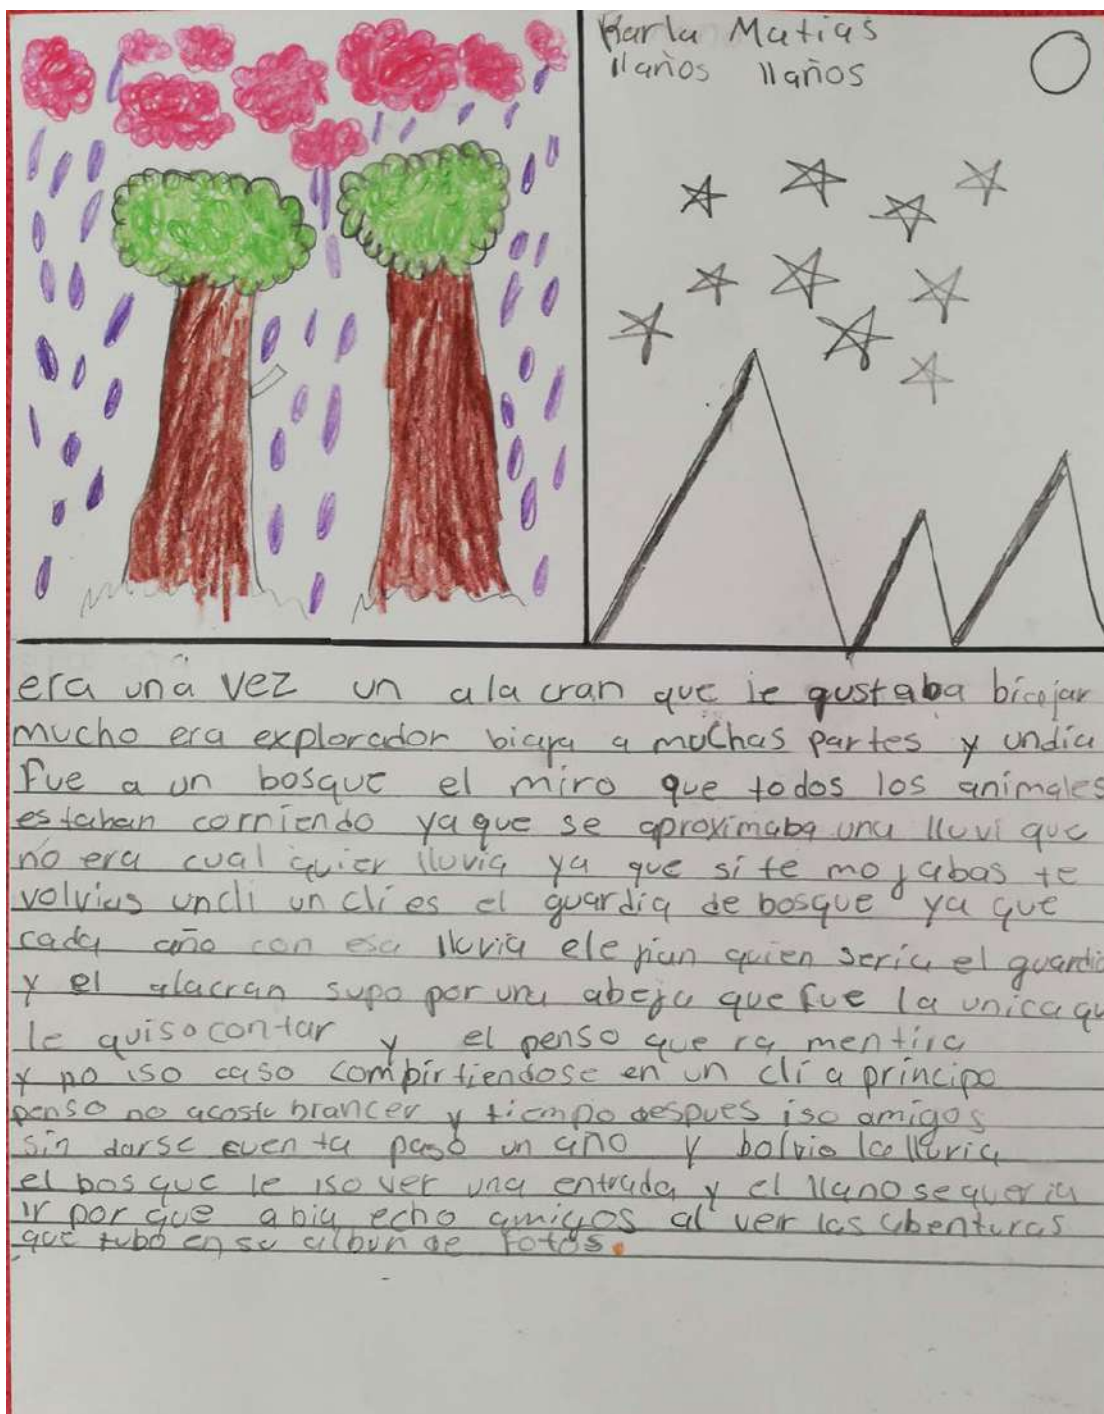 Karla Matias
11años 11años
era una vez un ala cran que le gustaba biajar
mucho era explorador biaja a muchas partes y undia
fue a un bosque el miro que todos los animales
estaban corriendo ya que se aproximaba una lluvi que
no era cual quier lluvia ya que si te mojabas te
volvias uncli un cli es el guardia de bosque ya que
cada año con esa lluvia ele jian quien seria el guardia
y el alacran supo por una abeja que fue la unica qu
le quiso contar y el penso que ra mentira
y no iso caso combirtiendose en un cli a principo
penso no acostu brancer y tiempo despues iso amigos
sin darse cuen ta paso un año y bolvio la lluvia
el bos que le iso ver una entrada y el llano se queria
ir por que abia echo amigos al veir las abenturas
que tubo en su albun de fotos.